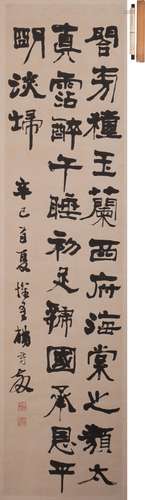 閣旁種玉蘭西府海棠之類太
真霑醉午睡初足虢國承恩平
明淡埽
辛巳首夏